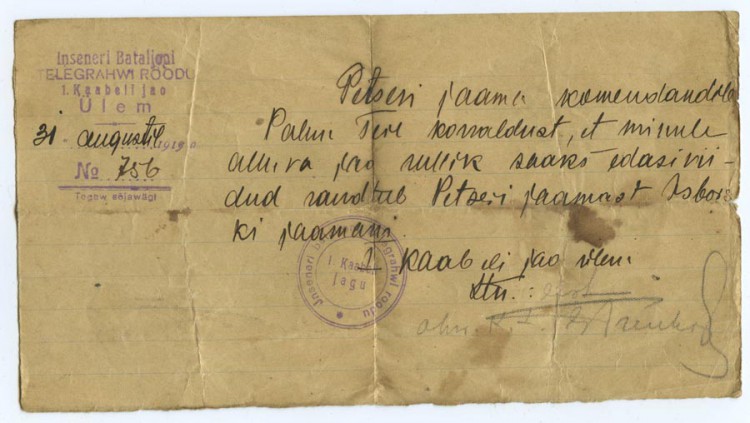 Inseneri Bataljoni
TELEGRAHWI ROODU
1. Kaabeli jao
Ülem
31 augustil 1919 a.
№ 756
Tegew sõjawägi
Petseri jaama komendandile
Palun Teie korraldust, et minule
alluva jao sullik saaks edasivii-
dud raudtub Petseri jaamast Isbors
ki jaamani.
1 Kaabeli jao ülem:
Ltn.:
Inseneri telegrahwi roodu
1. Kaabeli
jagu